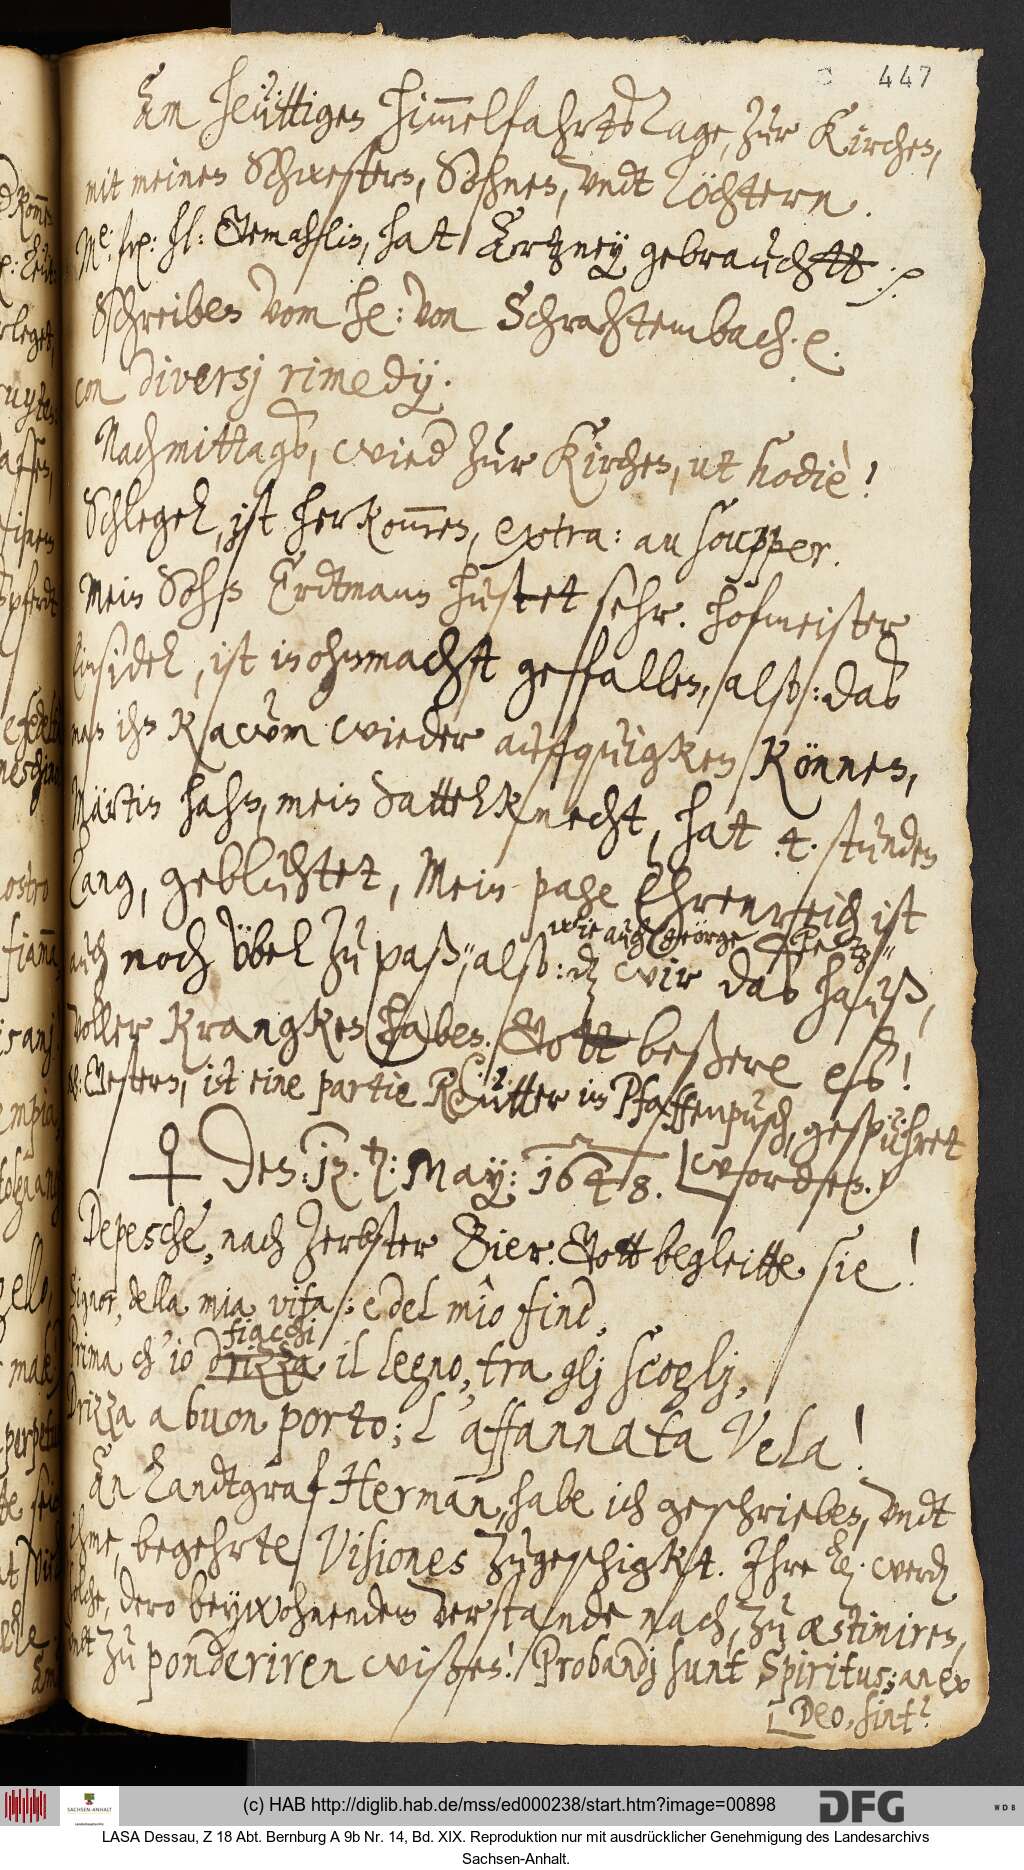 447
Am heüttigen Himmelfahrtstage, zur Kirchen,
mit meinen Schwestern, Söhnen, undt Töchtern.
Me: fr: h: Gemahlin, hat Artzney gebrauchtt. /.
Schreiben vom He: von Schrahtembach. e.
con diversj rimedij.
Nachmittags, wied zur Kirchen, ut hodie!
Schlegel, ist herkommen, extra: au soupper.
Mein Sohn Erdtmann hustet sehr. Hofmeister
Einsidel, ist in ohnmacht geffallen, also: das
man ihn kaum wieder auffquigken können,
Märtin Hahn, mein Sattelknecht, hat 4. stunden
lang, geblühtet, Mein page Ehrenreich ist
wie auch George Petz
auch noch übel zu paß, also: dz wir das hauß,
voller krangken haben. Gott beßere es!
Gestern, ist eine partie Reütter in Pfaffenpusch, gespühret
worden.
Den: 12. May: 1648.
Depesche, nach Zerbster Bier. Gott begleitte sie!
Signor, della mia vita: e del mio fine,
fiacchi
Prima ch'io drizza il legno, tra glj scoglj,
Drizza a buon porto; L'affannata Vela!
An Landtgraf Herman, habe ich geschrieben, undt
ihme, begehrte Visiones zugeschigkt. Ihre L. werden
solche, dero beywohnendem verstande nach, zu æstimiren,
undt zu ponderiren wißen! Probandj sunt Spiritus; an ex
Deo, sint?
(c) HAB http://diglib.hab.de/mss/ed000238/start.htm?image=00898
DFG
WDB
SACHSEN-ANHALT
LASA Dessau, Z 18 Abt. Bernburg A 9b Nr. 14, Bd. XIX. Reproduktion nur mit ausdrücklicher Genehmigung des Landesarchivs
Sachsen-Anhalt.